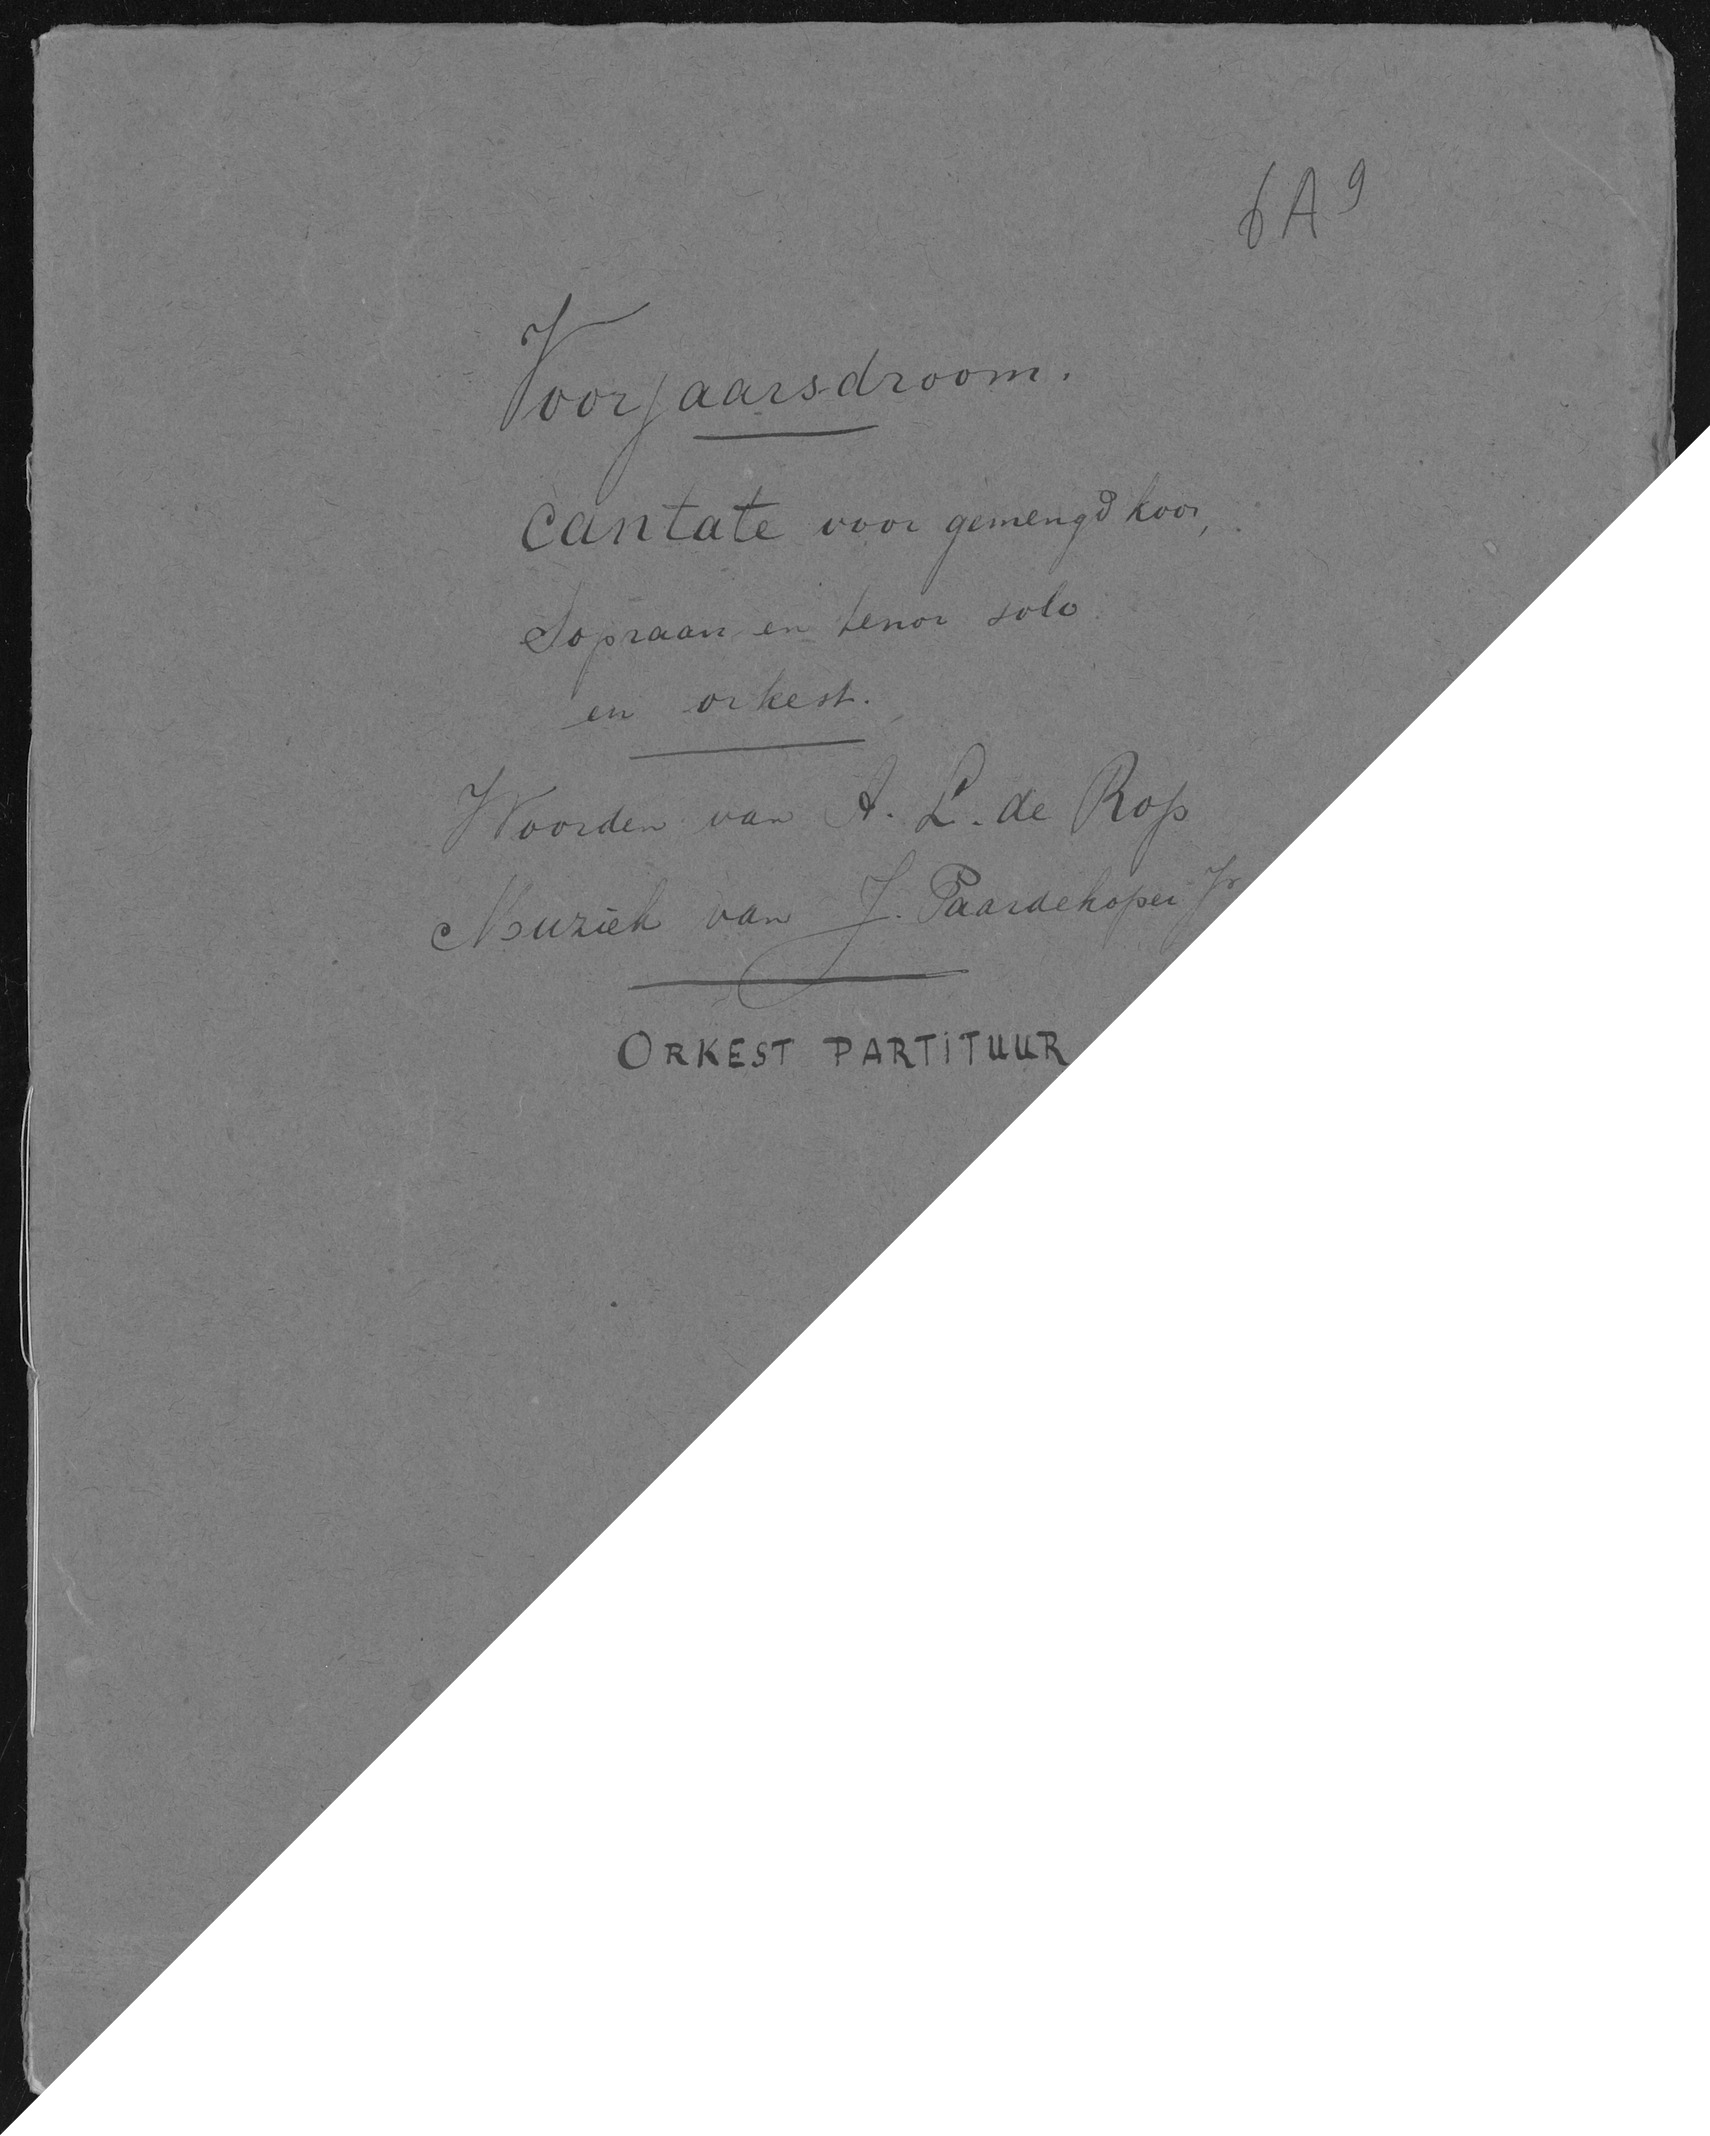 6A9
Voorjaarsdroom.
Cantate voor gemengd koor,
Sopraan en tenor solo
en orkest.
Woorden van A. L. de Rop
Muziek van J. Paardekoper Jr
ORKEST PARTITUUR